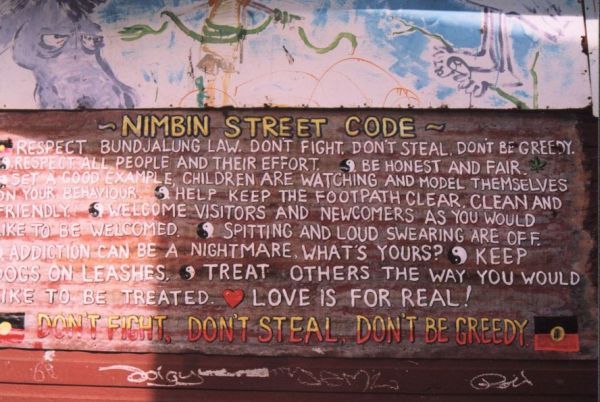 ~ NIMBIN STREET CODE ~
RESPECT BUNDJALUNG LAW. DON'T FIGHT. DON'T STEAL. DON'T BE GREEDY.
RESPECT ALL PEOPLE AND THEIR EFFORT. BE HONEST AND FAIR.
SET A GOOD EXAMPLE, CHILDREN ARE WATCHING AND MODEL THEMSELVES
ON YOUR BEHAVIOUR. HELP KEEP THE FOOTPATH CLEAR, CLEAN AND
FRIENDLY. WELCOME VISITORS AND NEWCOMERS AS YOU WOULD
LIKE TO BE WELCOMED. SPITTING AND LOUD SWEARING ARE OFF.
ADDICTION CAN BE A NIGHTMARE, WHAT'S YOURS? KEEP
DOGS ON LEASHES. TREAT OTHERS THE WAY YOU WOULD
LIKE TO BE TREATED. LOVE IS FOR REAL!
DON'T FIGHT, DON'T STEAL, DON'T BE GREEDY.